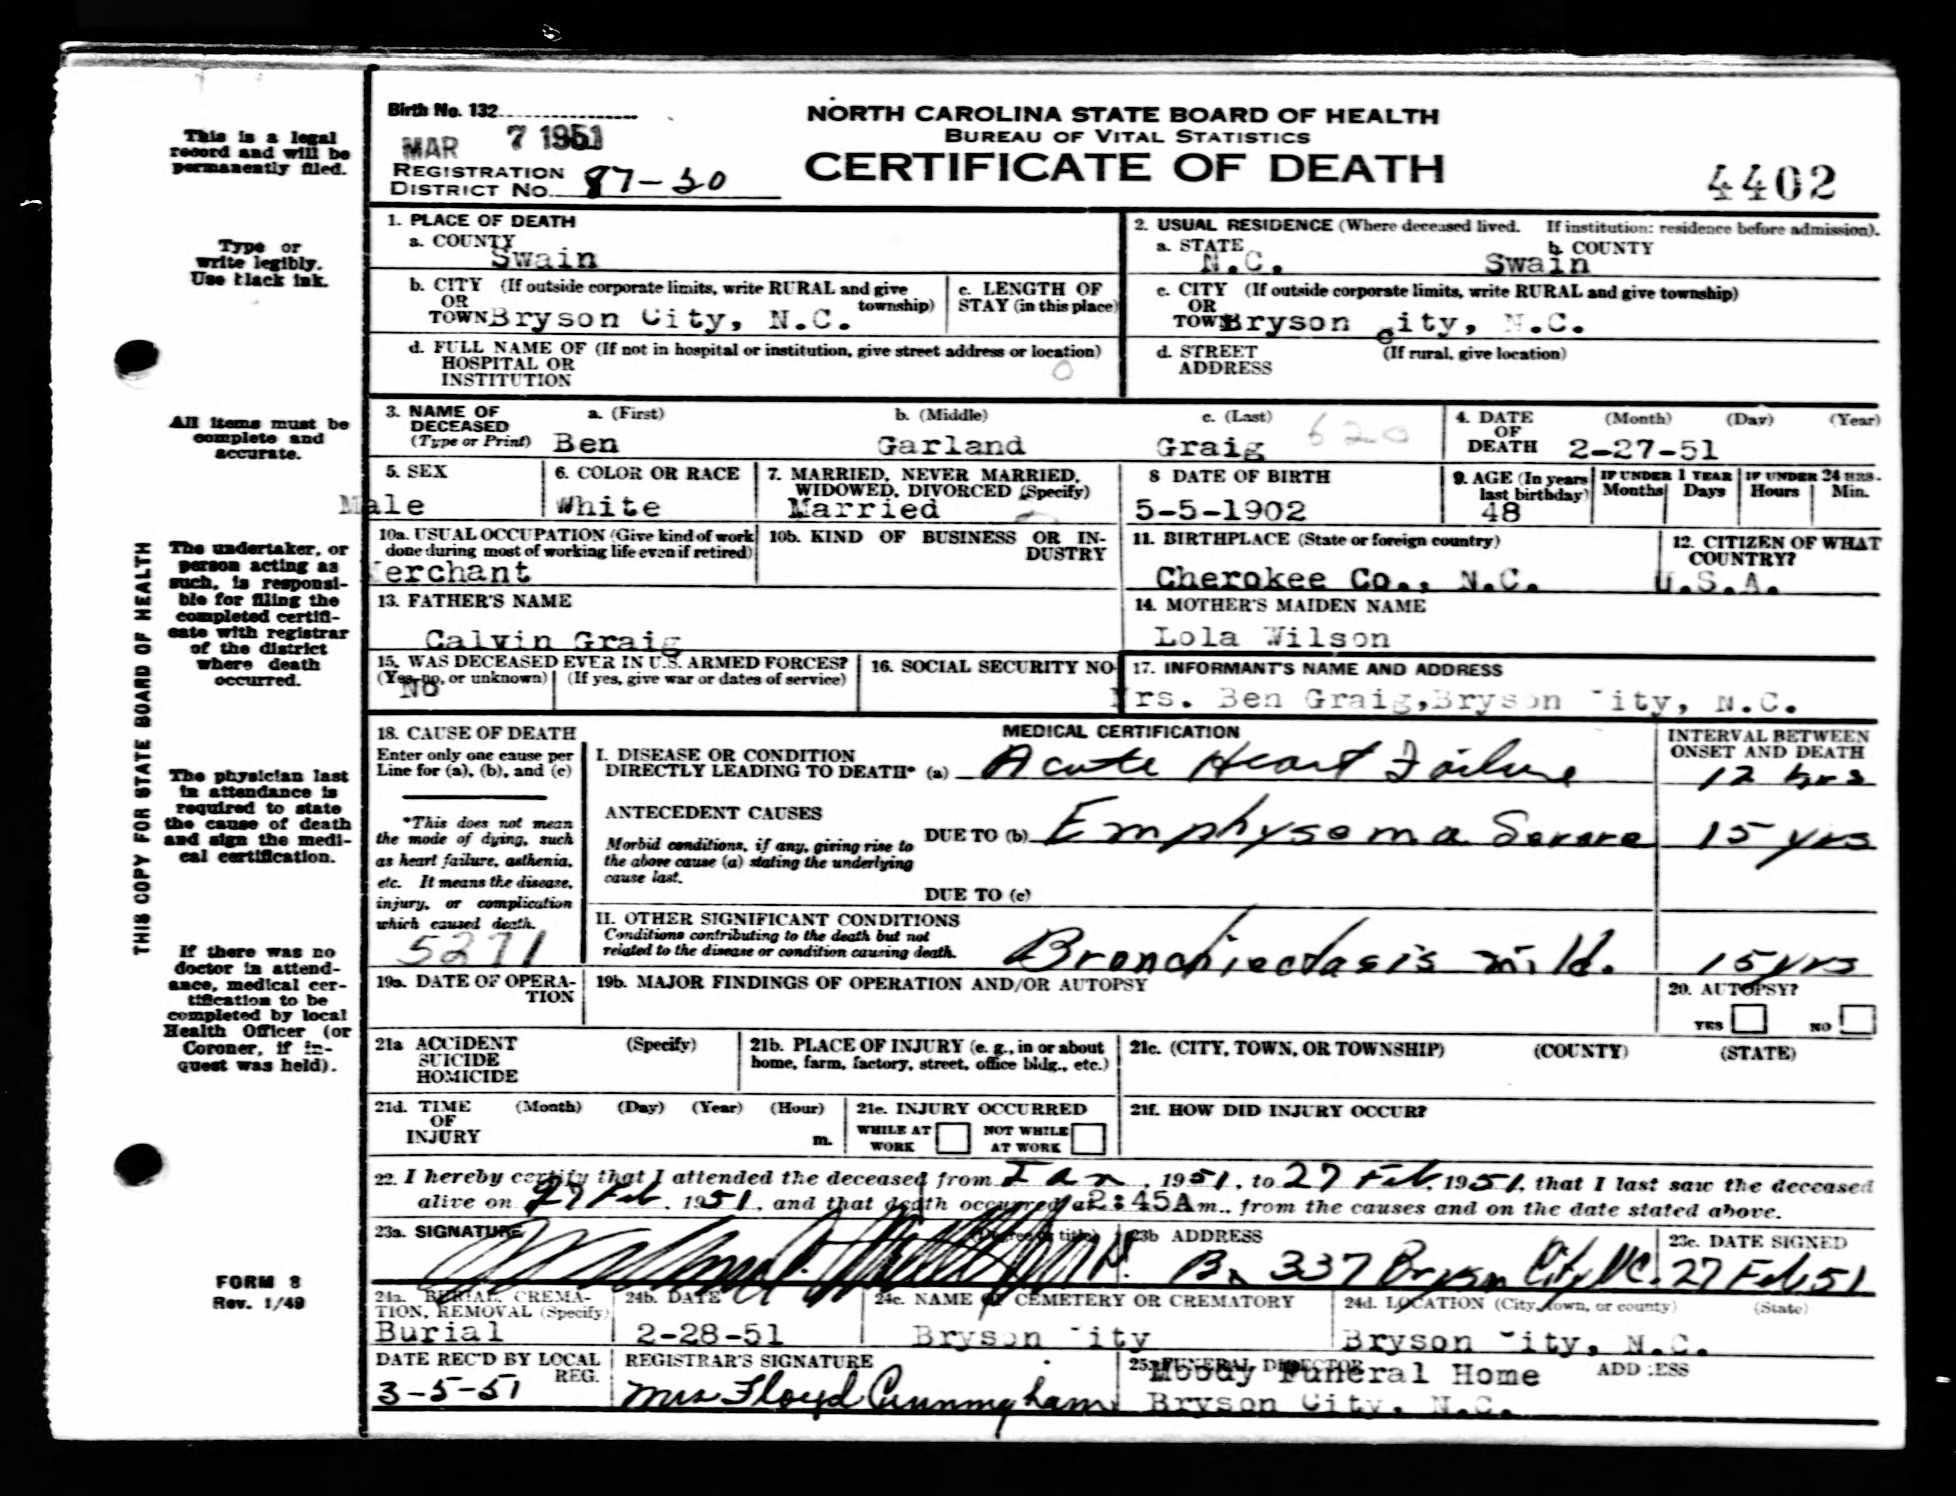 This is a legal
record and will be
permanently filed.
Type or
write legibly.
Use black ink.
All items must be
complete and
accurate.
The undertaker, or
person acting as
such, is responsi-
ble for filing the
completed certifi-
cate with registrar
of the district
where death
occurred.
The physician last
in attendance is
required to state
the cause of death
and sign the medi-
cal certification.
If there was no
doctor in attend-
ance, medical cer-
tification to be
completed by local
Health Officer (or
Coroner, if in-
quest was held).
FORM 8
Rev. 1/49
THIS COPY FOR STATE BOARD OF HEALTH
Birth No. 132
MAR 7 1951
REGISTRATION
DISTRICT NO. 87-50
NORTH CAROLINA STATE BOARD OF HEALTH
BUREAU OF VITAL STATISTICS
CERTIFICATE OF DEATH
4402
1. PLACE OF DEATH
a. COUNTY
Swain
b. CITY (If outside corporate limits, write RURAL and give
OR township)
TOWN Bryson City, N.C.
c. LENGTH OF
STAY (in this place)
d. FULL NAME OF (If not in hospital or institution, give street address or location)
HOSPITAL OR
INSTITUTION
0
2. USUAL RESIDENCE (Where deceased lived. If institution: residence before admission).
a. STATE b. COUNTY
N.C. Swain
c. CITY (If outside corporate limits, write RURAL and give township)
OR
TOWN Bryson City, N.C.
d. STREET (If rural, give location)
ADDRESS
3. NAME OF a. (First) b. (Middle) c. (Last)
DECEASED
(Type or Print) Ben Garland Graig 620
4. DATE (Month) (Day) (Year)
OF
DEATH 2-27-51
5. SEX
Male
6. COLOR OR RACE
White
7. MARRIED, NEVER MARRIED,
WIDOWED, DIVORCED (Specify)
Married
8 DATE OF BIRTH
5-5-1902
9. AGE (In years
last birthday)
48
IF UNDER 1 YEAR
Months Days
IF UNDER 24 HRS.
Hours Min.
10a. USUAL OCCUPATION (Give kind of work
done during most of working life even if retired)
Merchant
10b. KIND OF BUSINESS OR IN-
DUSTRY
11. BIRTHPLACE (State or foreign country)
Cherokee Co., N.C.
12. CITIZEN OF WHAT
COUNTRY?
U.S.A.
13. FATHER'S NAME
Calvin Graig
14. MOTHER'S MAIDEN NAME
Lola Wilson
15. WAS DECEASED EVER IN U.S. ARMED FORCES?
(Yes, no, or unknown) (If yes, give war or dates of service)
No
16. SOCIAL SECURITY NO
17. INFORMANT'S NAME AND ADDRESS
Mrs. Ben Graig, Bryson City, N.C.
18. CAUSE OF DEATH
Enter only one cause per
Line for (a), (b), and (c)
*This does not mean
the mode of dying, such
as heart failure, asthenia,
etc. It means the disease,
injury, or complication
which caused death.
5271
MEDICAL CERTIFICATION
I. DISEASE OR CONDITION
DIRECTLY LEADING TO DEATH* (a) Acute Heart Failure
ANTECEDENT CAUSES
Morbid conditions, if any, giving rise to
the above cause (a) stating the underlying
cause last.
DUE TO (b) Emphysema Severe
DUE TO (c)
II. OTHER SIGNIFICANT CONDITIONS
Conditions contributing to the death but not
related to the disease or condition causing death.
Bronchiectasis mild.
INTERVAL BETWEEN
ONSET AND DEATH
12 hrs
15 yrs
15 yrs
19a. DATE OF OPERA-
TION
19b. MAJOR FINDINGS OF OPERATION AND/OR AUTOPSY
20. AUTOPSY?
YES NO
21a ACCIDENT (Specify)
SUICIDE
HOMICIDE
21b. PLACE OF INJURY (e. g., in or about
home, farm, factory, street, office bldg., etc.)
21c. (CITY, TOWN, OR TOWNSHIP) (COUNTY) (STATE)
21d. TIME (Month) (Day) (Year) (Hour)
OF
INJURY m.
21e. INJURY OCCURRED
WHILE AT NOT WHILE
WORK AT WORK
21f. HOW DID INJURY OCCUR?
22. I hereby certify that I attended the deceased from Jan, 1951, to 27 Feb, 1951, that I last saw the deceased
alive on 27 Feb, 1951, and that death occurred at 2:45A m., from the causes and on the date stated above.
23a. SIGNATURE (Degree or title)
23b ADDRESS
Bx 337 Bryson City NC.
23c. DATE SIGNED
27 Feb 51
24a. BURIAL, CREMA-
TION, REMOVAL (Specify)
Burial
24b. DATE
2-28-51
24c. NAME OF CEMETERY OR CREMATORY
Bryson City
24d. LOCATION (City, town, or county) (State)
Bryson City, N.C.
DATE REC'D BY LOCAL
REG.
3-5-51
REGISTRAR'S SIGNATURE
Mrs Floyd Cunningham
25. FUNERAL DIRECTOR ADDRESS
Moody Funeral Home
Bryson City, N.C.